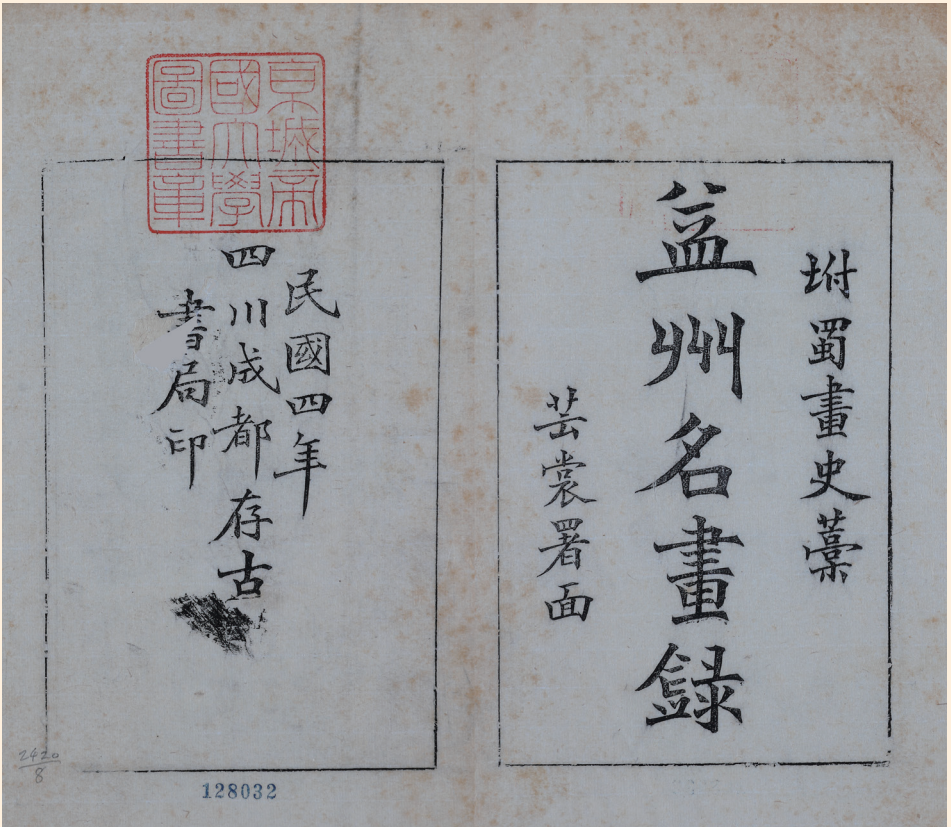 坿蜀畫史藁
益州名畫録
芸裳署面
京城帝
國大學
圖書章
民國四年
四川成都存古
書局印
2420
8
128032